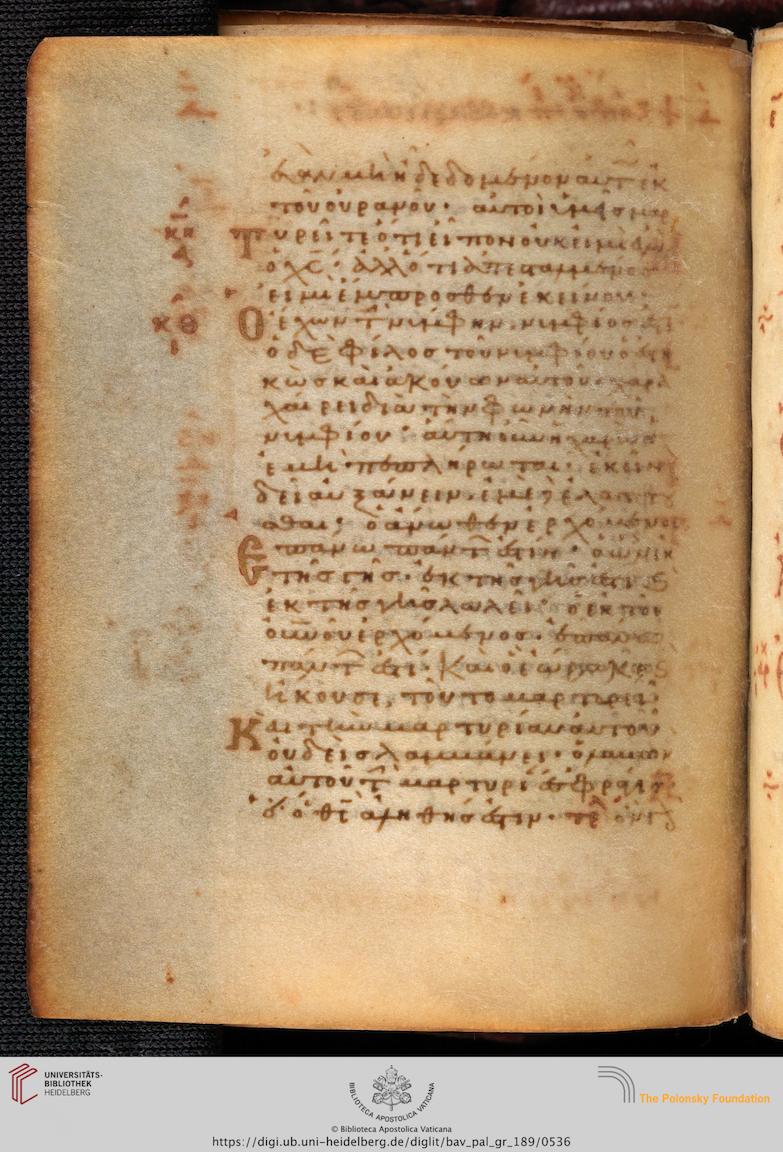 ἐὰν μὴ ᾖ δεδομένον αὐτ ἐκ
τοῦ οὐρανοῦ· αὐτοὶ ὑμεῖς μαρ
κη Τυρεῖτε ὅτι εἶπον οὐκ εἰμὶ ἐγὼ
ὁ χς· ἀλλ ὅτι ἀπεσταλμένος
εἰμὶ ἔμπροσθεν ἐκείνου·
κθ Ὁ ἔχων τ νύμφην, νυμφίος ἐστι
ὁ δὲ φίλος τοῦ νυμφίου ὁ ἑστη
κὼς καὶ ἀκούων αὐτοῦ χαρᾶ
χαίρει διὰ τὴν φωνὴν τοῦ
νυμφίου· αὕτη οὖν ἡ χαρὰ
ἐμὴ πεπλήρωται· ἐκεῖν
δεῖ αὐξάνειν. ἐμὲ ἐλαττοῦ
σθαι· ὁ ἄνωθεν ἐρχόμενο
Ἐπάνω πάντ ἐστίν· ὁ ὢν ἐκ
τῆς γῆς· ἐκ τῆς γῆς ἐστι
ἐκ τῆς γῆς λαλεῖ· ὁ ἐκ τοῦ
οὐνοῦ ἐρχόμενος· ἐπάνω
πάντ ἐστι· Καὶ ὃ ἑώρακε κς
ἤκουσε, τοῦτο μαρτυρεῖ
Καὶ τὴν μαρτυρίαν αὐτοῦ
οὐδεὶς λαμβάνει· ὁ λαβὼν
αὐτοῦ τ μαρτυρί ἐσφράγισ
ὁ θς ἀληθής ἐστιν· τε ὃν
UNIVERSITÄTS-
BIBLIOTHEK
HEIDELBERG
BIBLIOTECA APOSTOLICA VATICANA
The Polonsky Foundation
© Biblioteca Apostolica Vaticana
https://digi.ub.uni-heidelberg.de/diglit/bav_pal_gr_189/0536